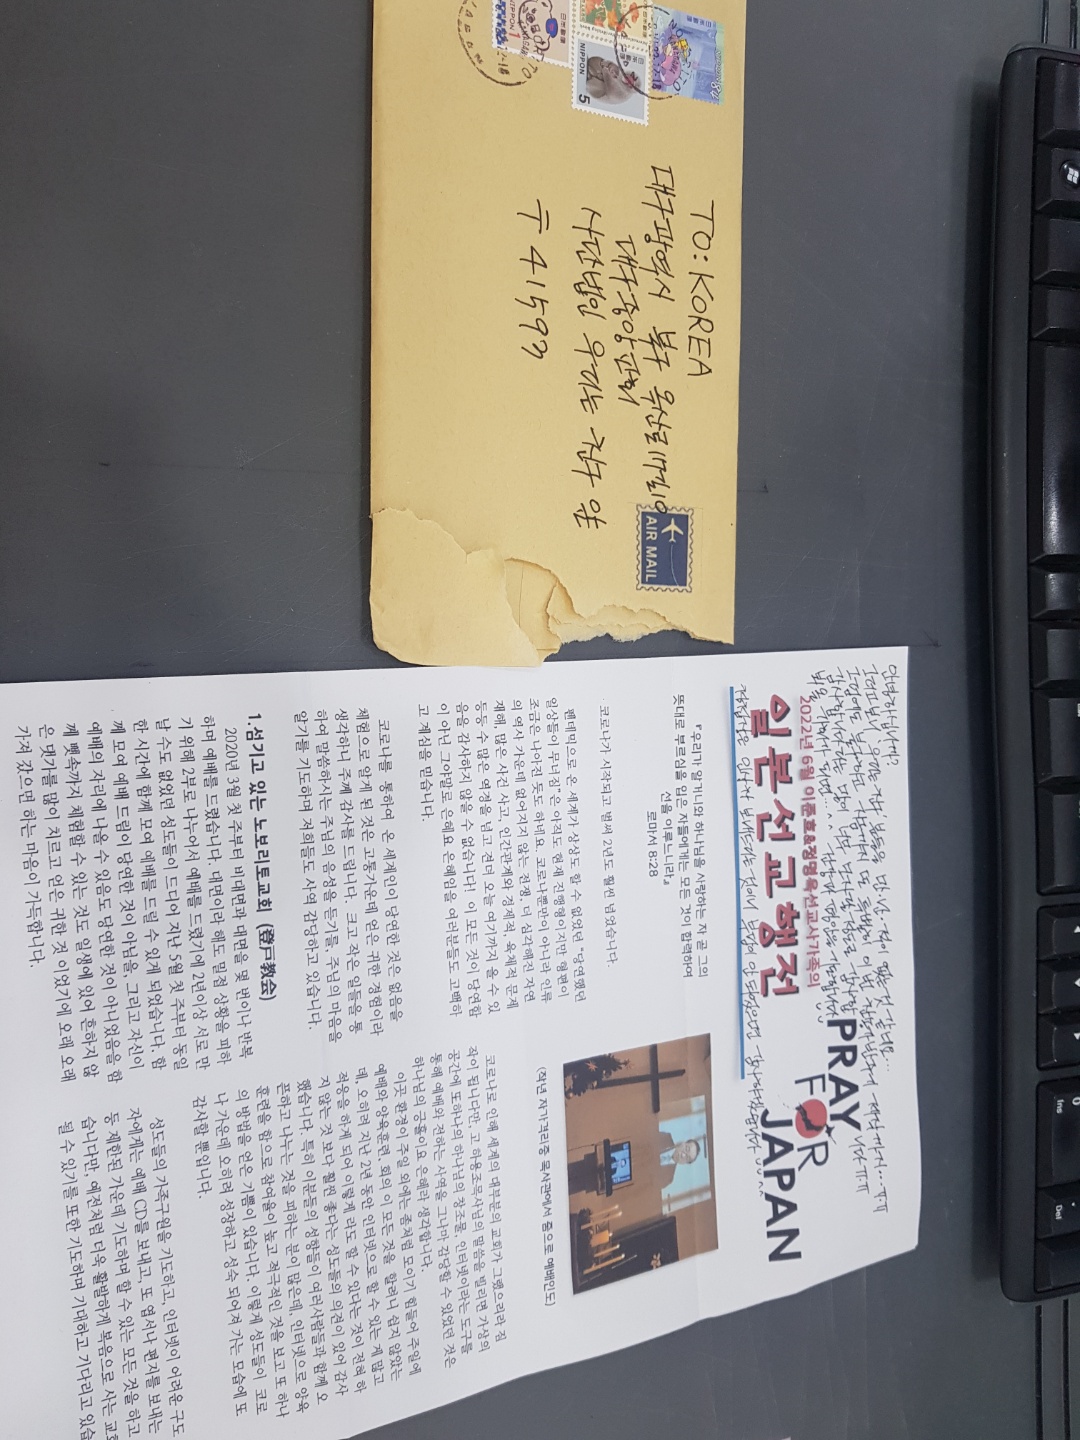 NIPPON
日本郵便
NIPPON
5
TO: KOREA
대구광역시 북구 옥산로17길10
대구중앙교회
사단법인 우리는 친구 앞
〒 41593
AIR MAIL
안녕하십니까?
PRAY
FOR
JAPAN
2022년 6월 이준호&정명옥선교사가족의
일본선교행전
『우리가 알거니와 하나님을 사랑하는 자 곧 그의
뜻대로 부르심을 입은 자들에게는 모든 것이 합력하여
선을 이루느니라』
로마서 8:28
코로나가 시작되고 벌써 2년도 훨씬 넘었습니다.
펜데믹으로 온 세계가 상상도 할 수 없었던 "당연했던
일상들이 무너짐"은 아직도 현재 진행형이지만 형편이
조금은 나아진 듯도 하네요. 코로나뿐만이 아니라 인류
의 역사 가운데 없어지지 않는 전쟁, 더 심각해진 자연
재해, 많은 사건 사고, 인간관계와 경제적, 육체적 문제
등등 수 많은 여정을 넘고 견뎌 오늘 여기까지 올 수 있
음을 감사하지 않을 수 없습니다! 이 모든 것이 당연함
이 아닌 그야말로 은혜요 은혜임을 여러분들도 고백하
고 계심을 믿습니다.
코로나를 통하여 온 세계인이 당연한 것은 없음을
체험으로 알게 된 것은 고통가운데 얻은 귀한 경험이라
생각하니 주께 감사를 드립니다. 크고 작은 일들을 통
하여 말씀하시는 주님의 음성을 듣기를, 주님의 마음을
알기를 기도하며 저희들도 사역 감당하고 있습니다.
1.섬기고 있는 노보리토교회 (登戸教会)
2020년 3월 첫 주부터 비대면과 대면을 몇 번이나 반복
하며 예배를 드렸습니다. 대면이라 해도 밀접 상황을 피하
기 위해 2부로 나누어서 예배를 드렸기에 2년이상 서로 만
날 수도 없었던 성도들이 드디어 지난 5월 첫 주부터 동일
한 시간에 함께 모여 예배를 드릴 수 있게 되었습니다. 함
께 모여 예배 드림이 당연한 것이 아님을, 그리고 자신이
예배의 자리에 나올 수 있음도 당연한 것이 아니었음을 함
께 뼛속까지 체험할 수 있는 것도 일생에 있어 흔하지 않
은 댓가를 많이 치르고 얻은 귀한 것 이었기에 오래 오래
가져 갔으면 하는 마음이 가득합니다.
(작년 자가격리중 목사관에서 줌으로 예배인도)
코로나로 인해 세계의 대부분의 교회가 그랬으리라 짐
작이 됩니다만, 고 하용조목사님의 말씀을 빌리면 가상의
공간에 또하나의 하나님의 창조물, 인터넷이라는 도구를
통해 예배와 전하는 사역을 그나마 감당할 수 있었던 것은
하나님의 긍휼이요 은혜라 생각합니다.
이곳 환형이 주일 외에는 좀처럼 모이기 힘들어 주일에
예배와 양육훈련, 회의 이 모든 것을 할려니 쉽지 않았는
데, 오히려 지난 2년 동안 인터넷으로 할 수 있는 게 많고
적응을 하게 되어 이렇게 라도 할 수 있다는 것이 전혀 하
지 않는 것 보다 훨씬 좋다는 성도들의 의견이 있어 감사
했습니다. 특히 이분들의 성향들이 여러사람들과 함께 오
픈하고 나누는 것을 피하는 분이 많은데, 인터넷으로 양육
훈련을 함으로 참여율이 높고 적극적인 것을 보고 또 하나
의 방법을 얻은 기쁨이 있습니다. 이렇게 성도들이 코로
나 가운데 오히려 성장하고 성숙 되어져 가는 모습에 또
감사할 뿐입니다.
성도들의 가족구원을 기도하고, 인터넷이 어려운 구도
자에게는 예배 CD를 보내고 또 엽서나 편지를 보내는
등 제한된 가운데 기도하며 할 수 있는 모든 것을 하고
습니다만, 예전처럼 더욱 활발하게 복음으로 사는 교회
될 수 있기를 또한 기도하며 기대하고 기다리고 있습
Ins
Del